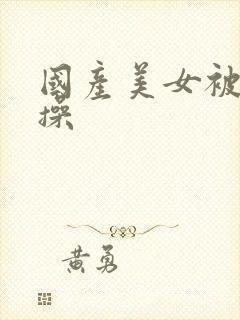 國產美女被
操
黃勇